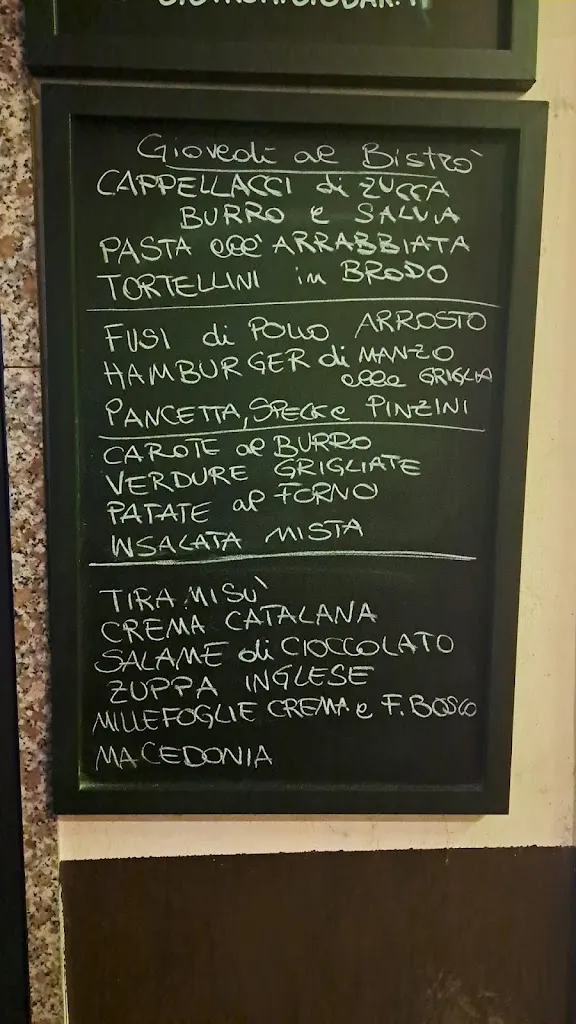 Giovedì al Bistrò
CAPPELLACCI di ZUCCA
BURRO e SALVIA
PASTA all'ARRABBIATA
TORTELLINI in BRODO
FUSI di POLLO ARROSTO
HAMBURGER di MANZO
alla GRIGLIA
PANCETTA, SPECK e PINZINI
CAROTE al BURRO
VERDURE GRIGLIATE
PATATE al FORNO
INSALATA MISTA
TIRAMISU'
CREMA CATALANA
SALAME di CIOCCOLATO
ZUPPA INGLESE
MILLEFOGLIE CREMA e F. BOSCO
MACEDONIA